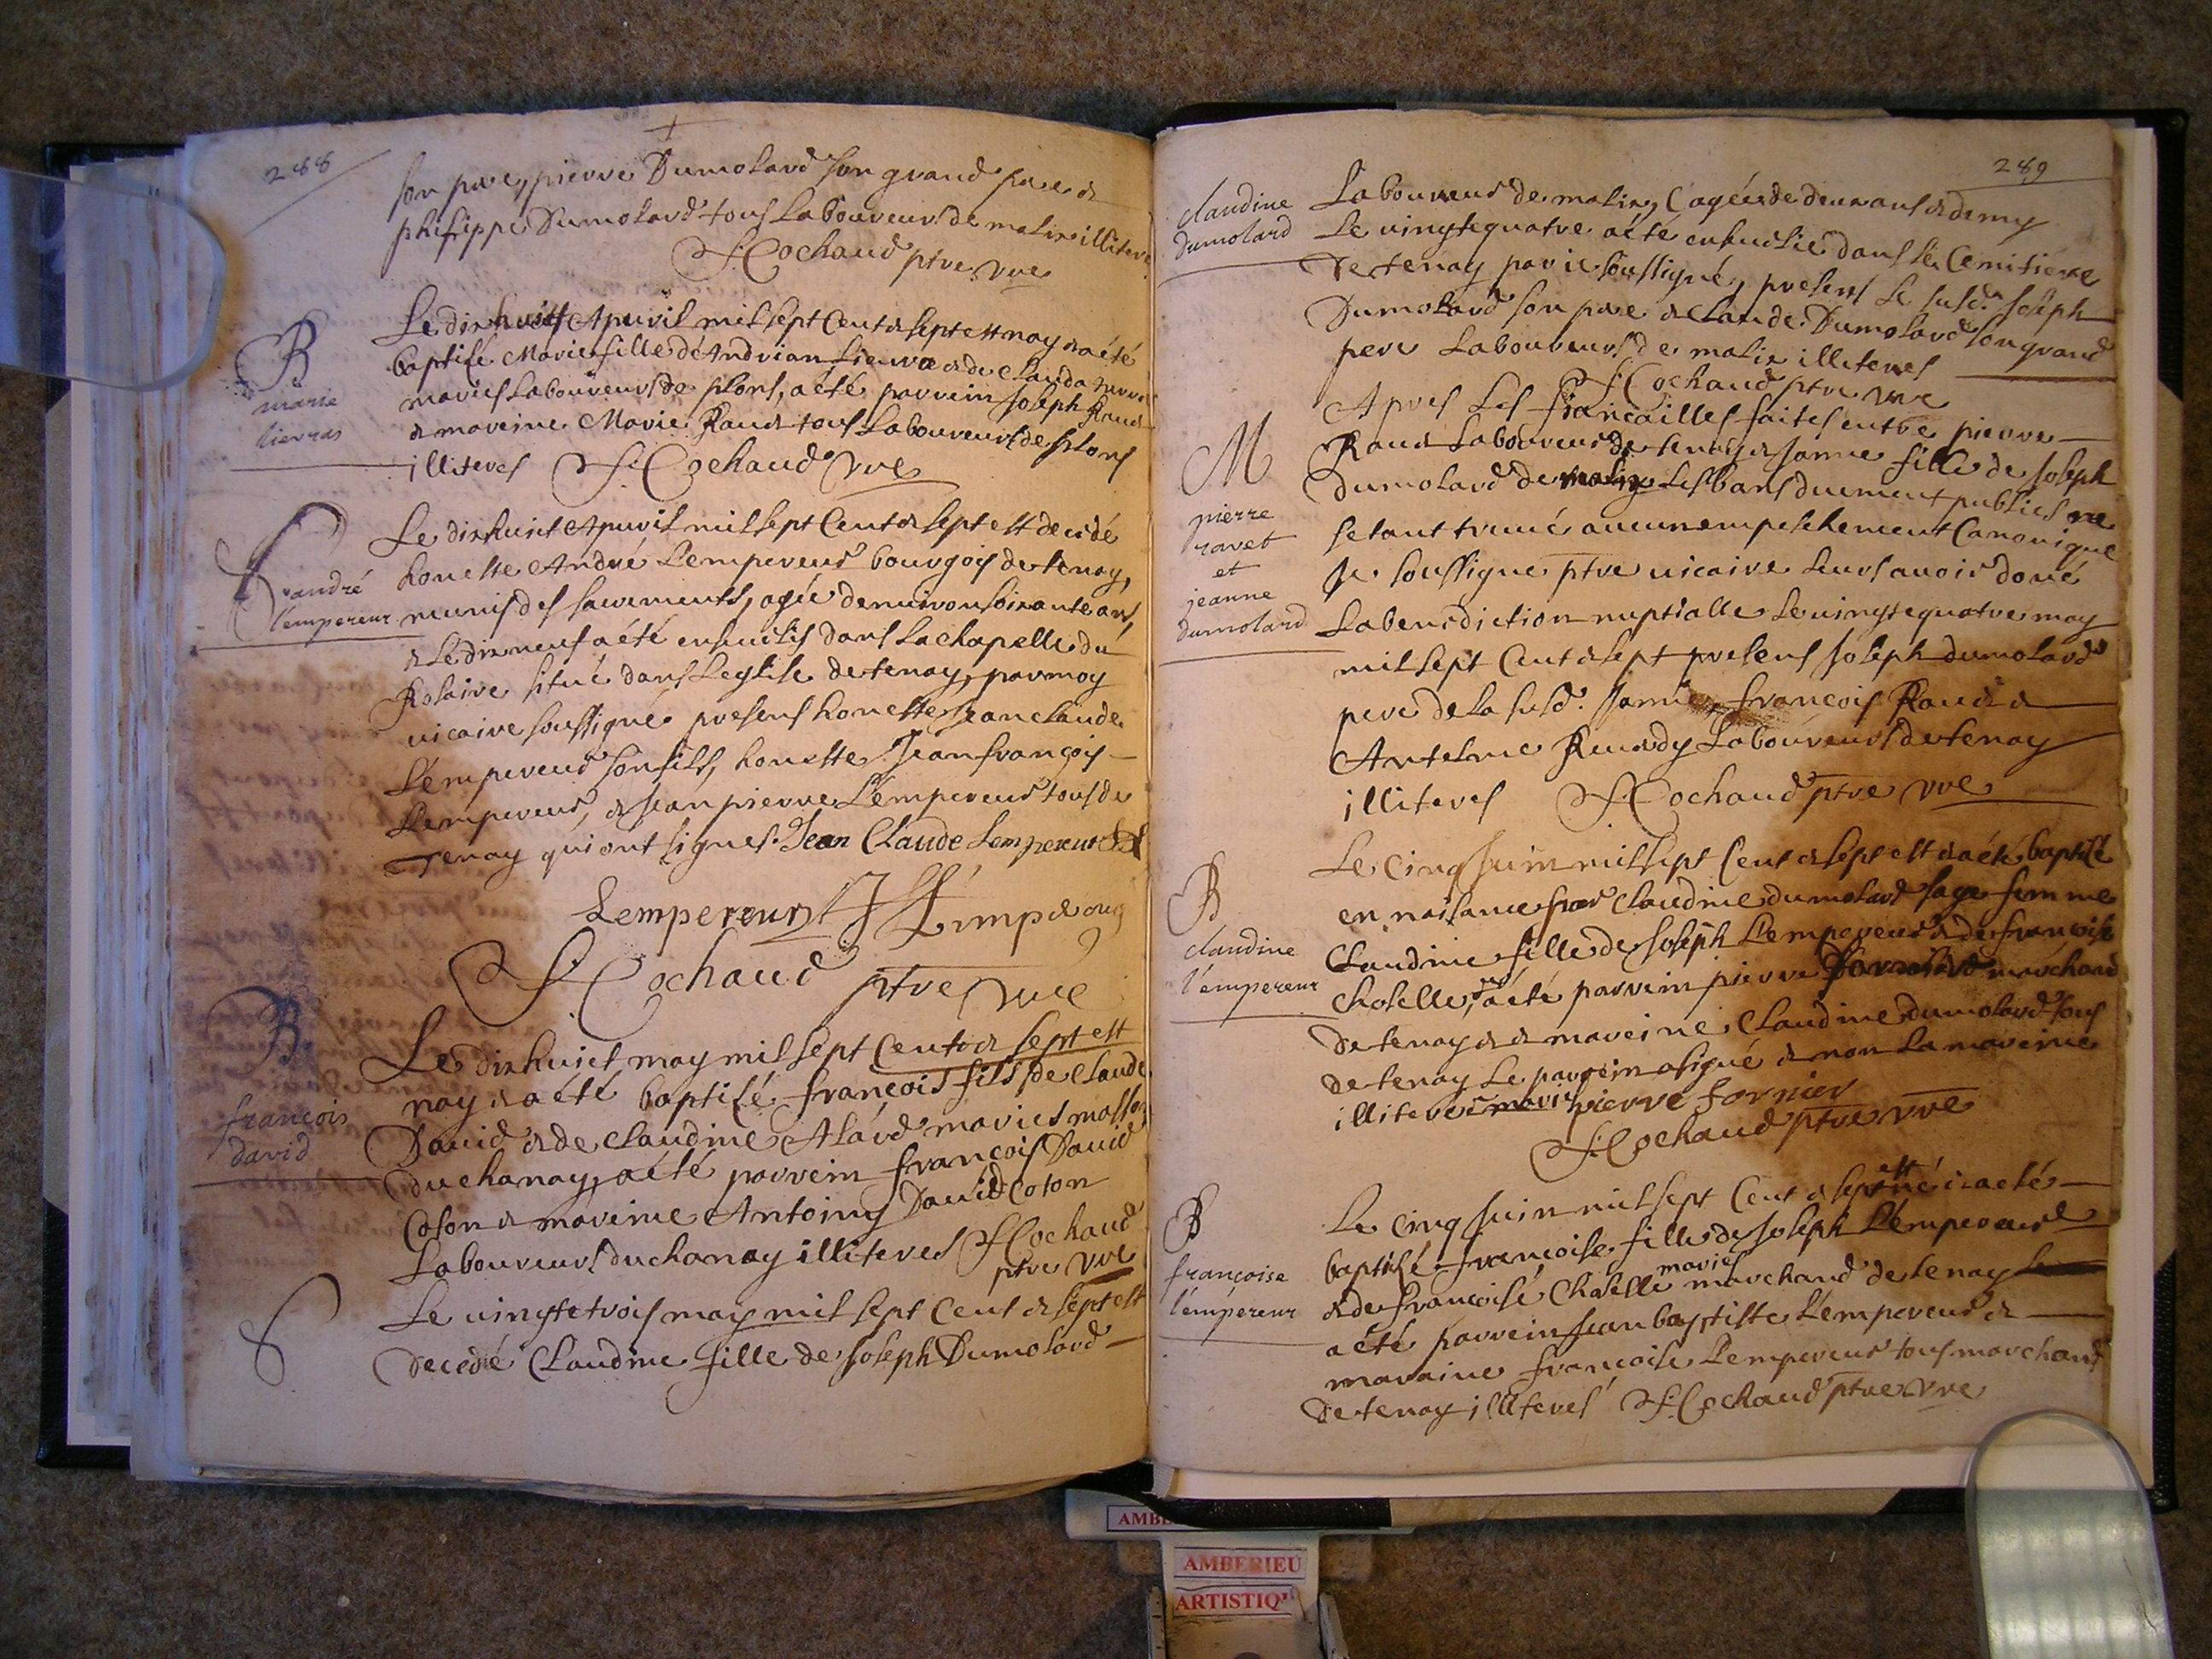 288
son pere, pierre Dumolard son grand pere &
philippe Dumolard tous Laboureurs de malix illiteres
F: Cochaud ptre vre
B
marie
lierras
Le dixhuict Apuril mil sept Cent & sept est nay & a été
baptisé Marie fille d'Andrian & de Clauda
mariés Laboureurs de plons, a été parrein Joseph Raud
& mareine Marie Raud tous Laboureurs de plons
illiteres F: Cochaud vre
andré
l'empereur
Le dixhuict Apuril mil sept Cent & sept est decédé
honeste André Lempereur bourgois de tenay,
meunis des sacrements, agée d'enuiron soixante ans,
& Le dixneuf a été enseuelis dans La chapelle du
Rosaire situé dans Leglise de tenay, par moy
uicaire soussigné presens honeste Jean claude
L'empereur son fils, honeste Jean françois
Lempereur, & Jean pierre L'empereur tous de
Tenay qui ont signes. Jean Claude Lempereur
Lempereur
F: Cochaud ptre vre
B
françois
david
Le dixhuict may mil sept Cent & sept est
nay & a été baptisé françois fils de Claude
Dauid & de Claudine Alard mariés masson
du chanay, a été parrein françois Dauid
Coton & mareine Antoiny Dauid Coton
Laboureurs du chanay illiteres F: Cochaud
ptre vre
Le uingtetrois may mil sept Cent & sept est
Decedé Claudine fille de Joseph Dumolard
289
claudine
dumolard
Laboureur de malix, agée de deux ans & demy
Le uingtequatre a été enseuelie dans Le Cemitiere
De tenay par ie soussigné, presens Le susd. Joseph
Dumolard son pere & Claude Dumolard son grand
pere Laboureurs de malix illiteres
F: Cochaud ptre vre
M
pierre
ravet
et
jeanne
dumolard
Apres Les fiançailles faites entre pierre
Raud Laboureur de tenay & Janne fille de Joseph
Dumolard de malix Les bans duement publies ne
s'etant truué aucun empeschement Canonique
Je soussigné ptre uicaire Leurs auoir doné
La benediction nuptialle Le uingtequatre may
mil sept Cent & sept presens Joseph dumolard
pere de La susd. Janne, françois Raud &
Antelme Laboureurs de tenay
illiteres F: Cochaud ptre vre
B
claudine
l'empereur
Le Cinq Juin mil sept Cent & sept est & a été baptisé
en naisance par Claudine dumolard sage femme
Claudine fille de Joseph L'empereur & de françoise
Choselle, a été parrein pierre marchand
De tenay & mareine Claudine dumolard tous
de tenay Le parrein a signé & non La mareine
illitere pierre fornier
F: Cochaud ptre vre
B
françoise
l'empereur
Le Cinq Juin mil sept Cent & sept est né & a été
baptisé françoise fille de Joseph L'empereur
& de françoise Choselle mariés marchand de tenay
a été parrein Jean baptiste L'empereur &
maraine françoise Lempereur tous marchand
De tenay illiteres F: Cochaud ptre vre
AMBERIEU
ARTISTIQ